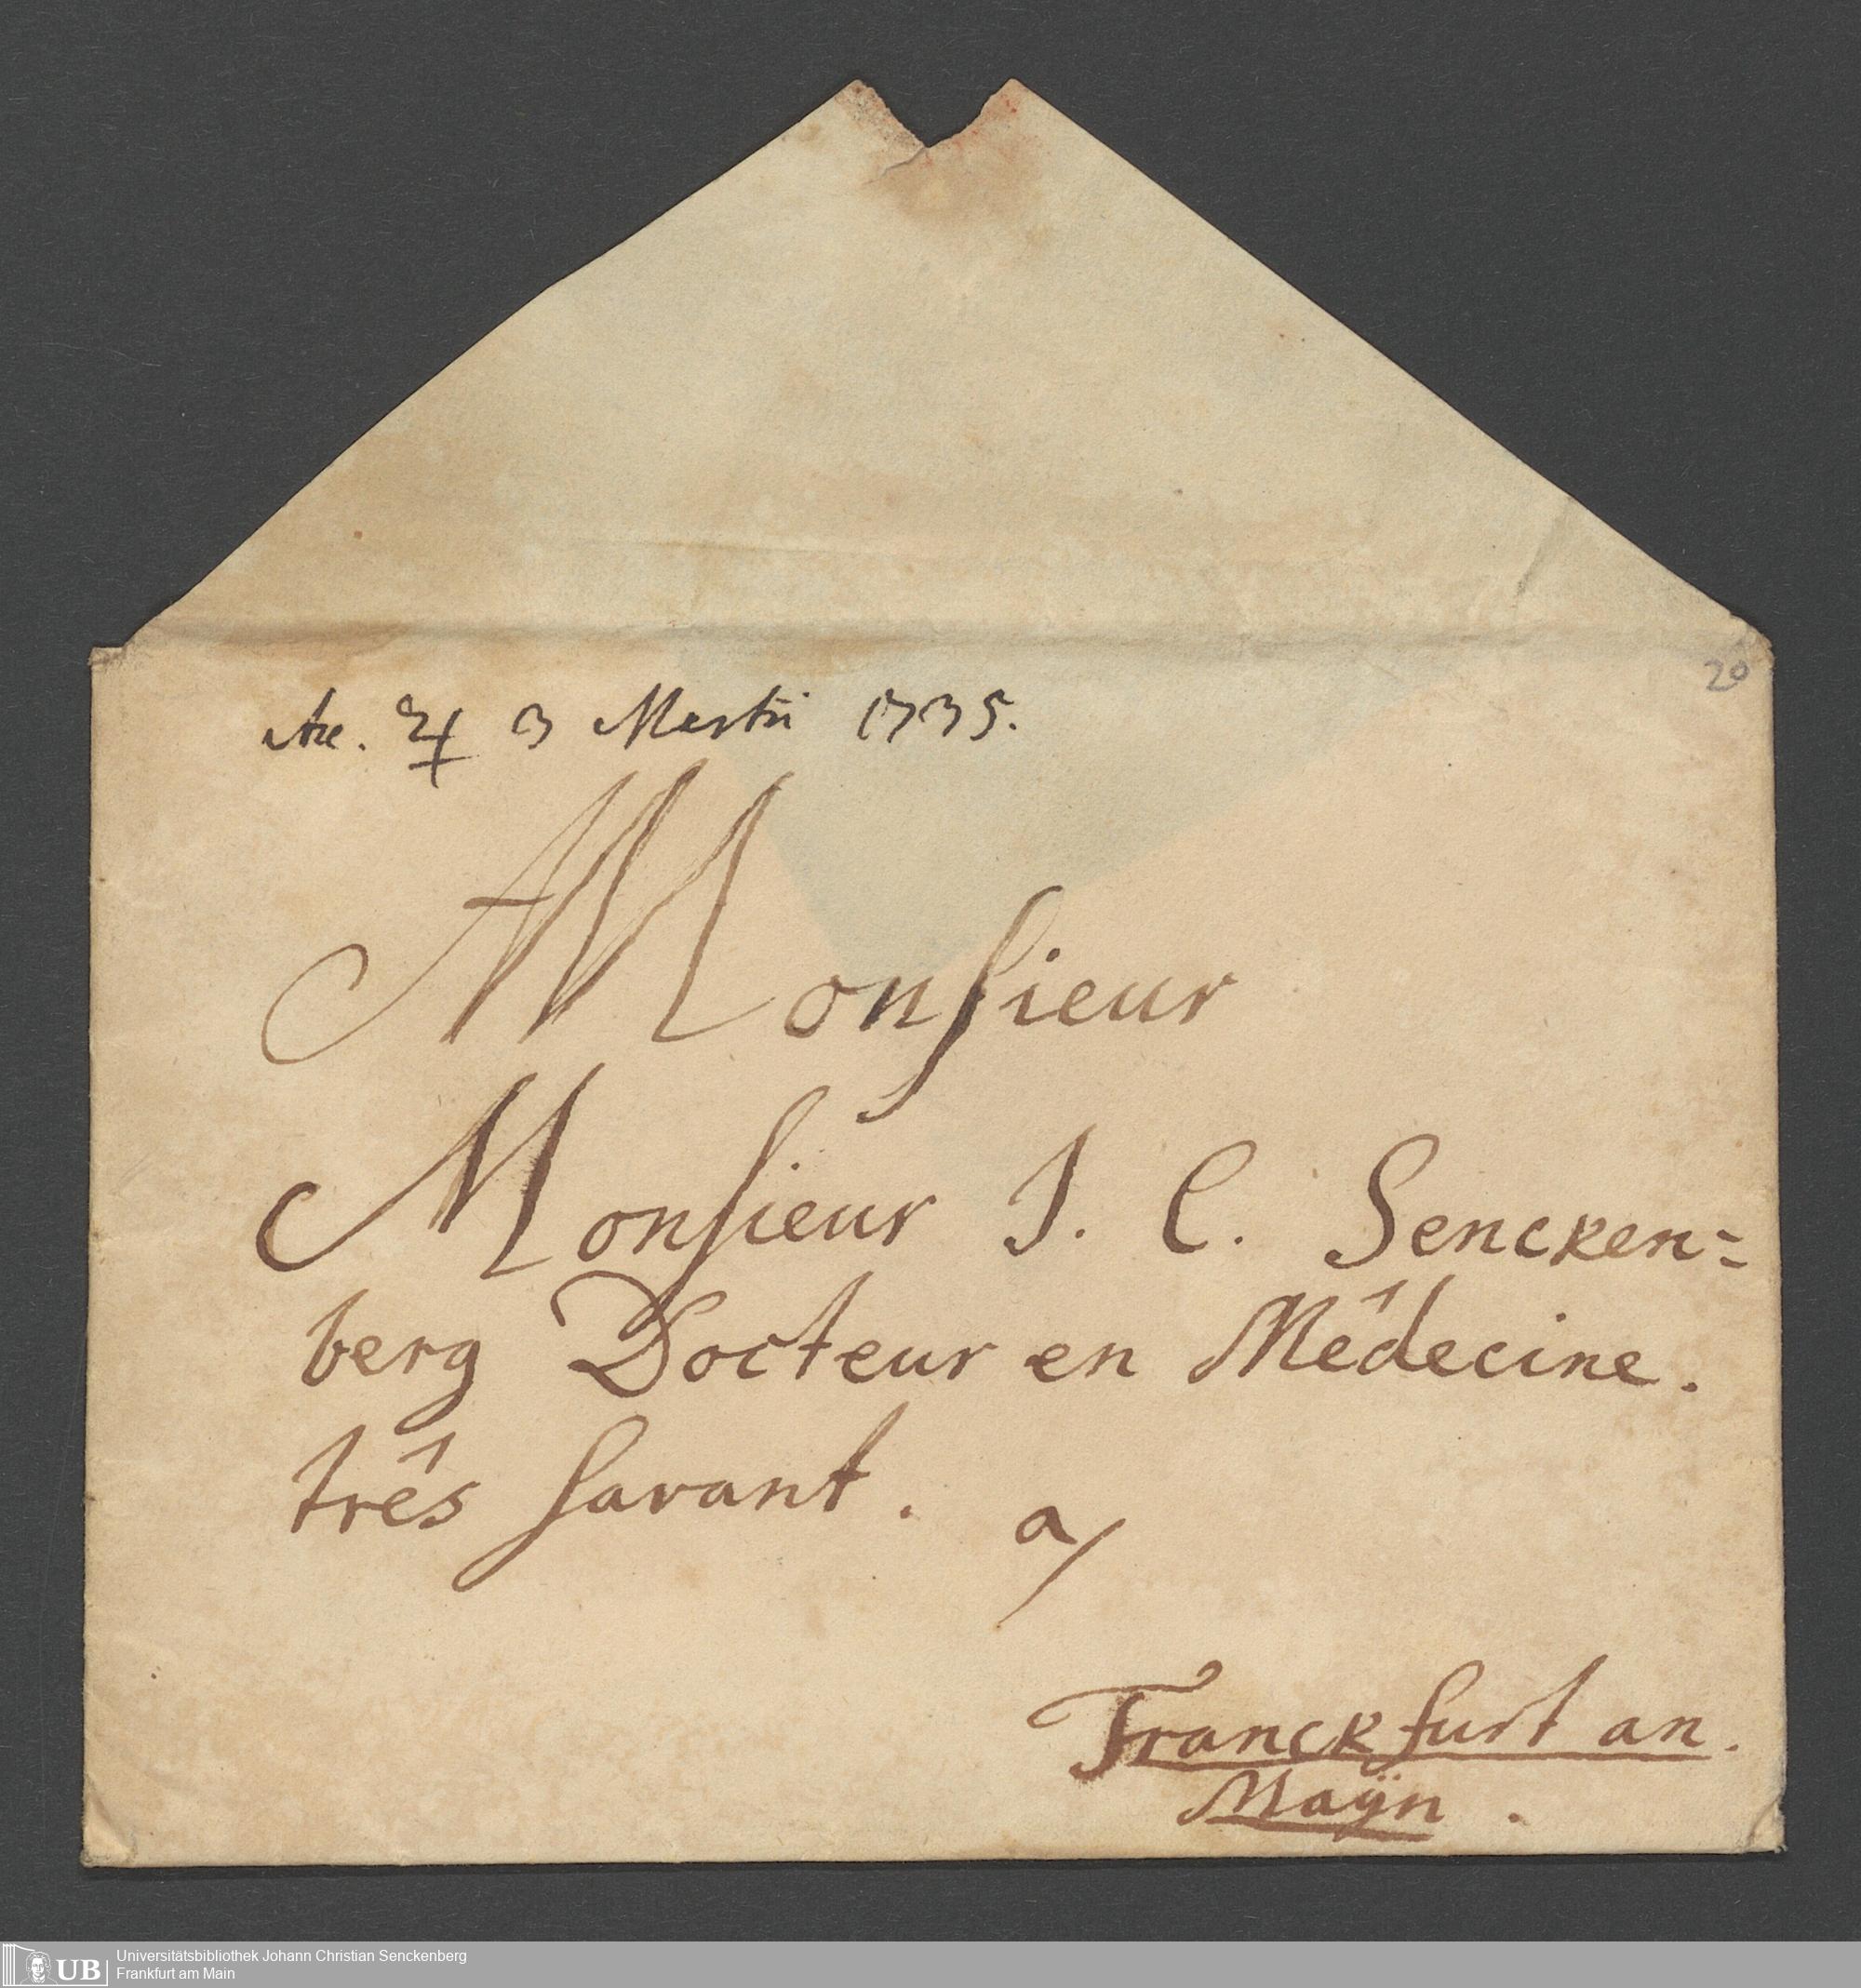 Acc. ♃ 3 Martii 1735.
20
Monsieur
Monsieur J. C. Sencken=
berg Docteur en Médecine.
três savant. a
Franckfurt an.
Maÿn.
UB Universitätsbibliothek Johann Christian Senckenberg
Frankfurt am Main